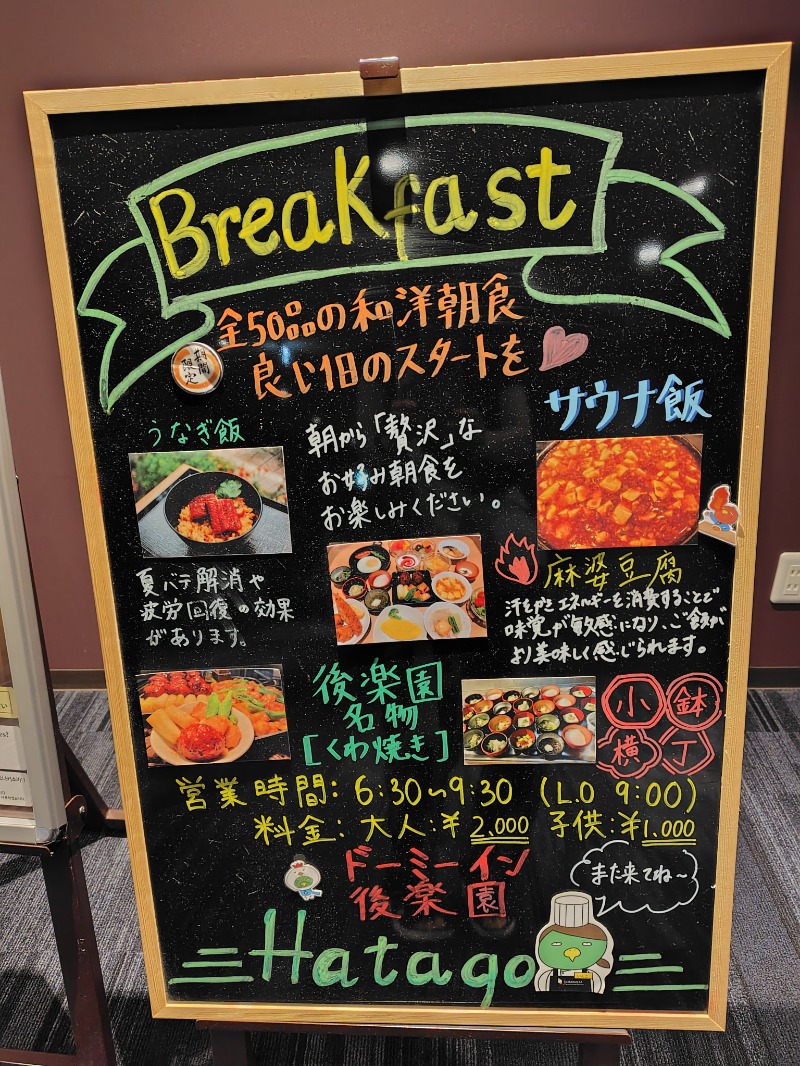 Breakfast
全50品の和洋朝食
良い1日のスタートを
期間
限定
サウナ飯
うなぎ飯
朝から「贅沢」な
お好み朝食を
お楽しみください。
夏バテ解消や
疲労回復の効果
があります。
麻婆豆腐
汗をかきエネルギーを消費することで
味覚が敏感になり、ご飯が
より美味しく感じられます。
後楽園
名物
[くわ焼き]
小鉢
横丁
営業時間:6:30~9:30 (L.O 9:00)
料金:大人:¥2,000 子供:¥1,000
ドーミーイン
後楽園
また来てね~
Hatago